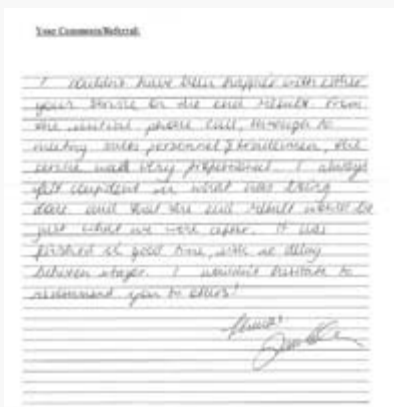 Your Comments/Referral:
I couldn't have been happier with either
your service or the end result. From
the initial phone call, through to
meeting sales personnel & tradesmen, the
service was very professional. I always
felt confident in what was being
done and that the end result would be
just what we were after. It was
finished in good time, with no delay
between stages. I wouldn't hesitate to
recommend you to others!